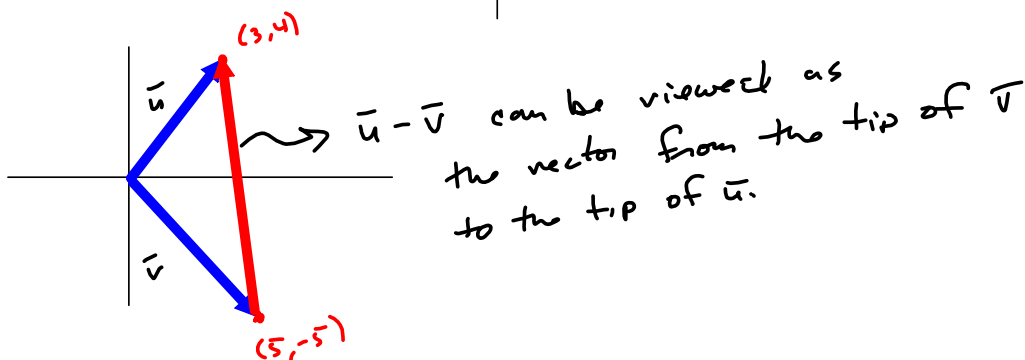 (3,4)
ū
ū - v̄ can be viewed as
the vector from the tip of v̄
to the tip of ū.
v̄
(5,-5)